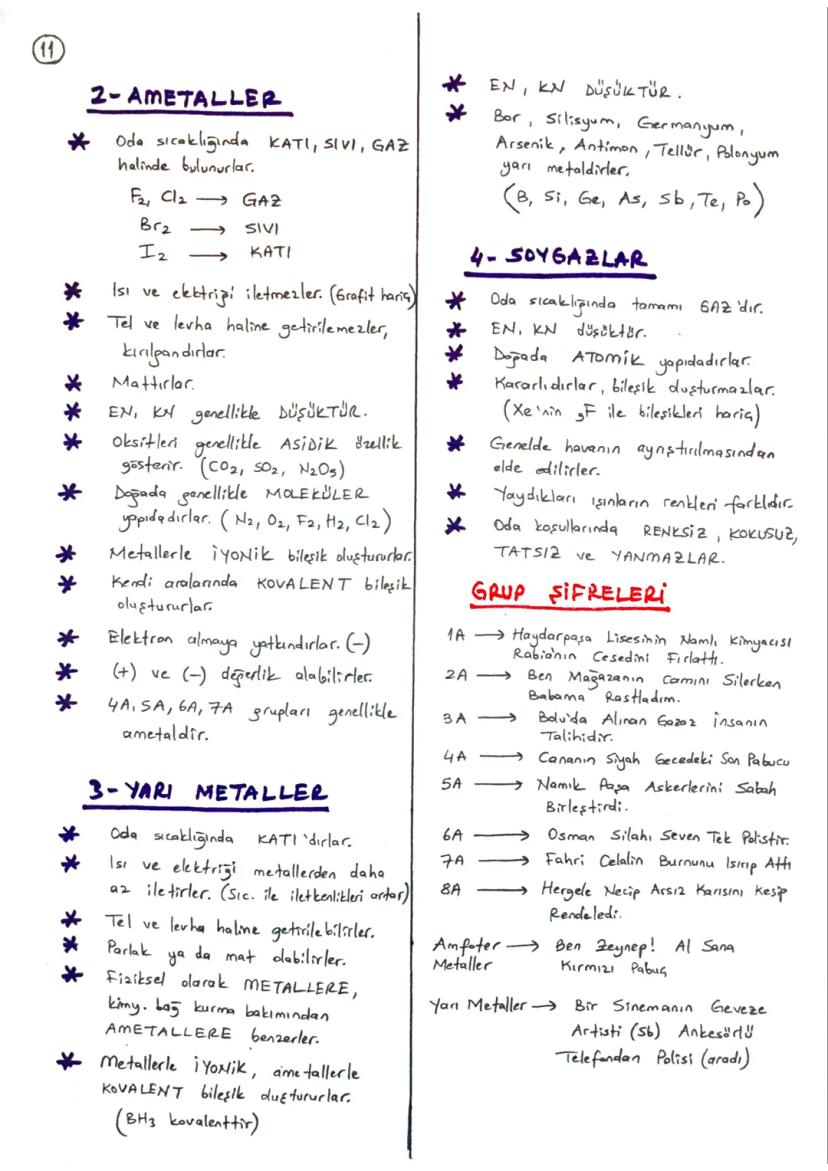 11
2- AMETALLER
* Oda sıcaklığında KATI, SIVI, GAZ
halinde bulunurlar.
F₂, Cl₂ → GAZ
Br₂ → SIVI
I₂ → KATI
* Isı ve elektriği iletmezler. (Grafit hariç)
* Tel ve levha haline getirilemezler,
kırılgandırlar.
* Mattırlar.
* EN, KN genellikle DÜŞÜKTÜR.
* Oksitleri genellikle ASİDİK özellik
gösterir. (CO₂, SO₂, N₂O₅)
* Doğada genellikle MOLEKÜLER
yapıdadırlar. (N₂, O₂, F₂, H₂, Cl₂)
* Metallerle İYONİK bileşik oluştururlar.
* Kendi aralarında KOVALENT bileşik
oluştururlar.
* Elektron almaya yatkındırlar. (-)
* (+) ve (-) değerlik alabilirler.
* 4A, 5A, 6A, 7A grupları genellikle
ametaldir.
3- YARI METALLER
* Oda sıcaklığında KATI'dırlar.
* Isı ve elektriği metallerden daha
az iletirler. (Sıc. ile iletkenlikleri artar)
* Tel ve levha haline getirilebilirler.
* Parlak ya da mat olabilirler.
* Fiziksel olarak METALLERE,
kimy. bağ kurma bakımından
AMETALLERE benzerler.
* Metallerle İYONİK, ametallerle
KOVALENT bileşik oluştururlar.
(BH₃ kovalenttir)
* EN, KN DÜŞÜKTÜR.
* Bor, Silisyum, Germanyum,
Arsenik, Antimon, Tellür, Polonyum
yarı metaldirler.
(B, Si, Ge, As, Sb, Te, Po)
4- SOYGAZLAR
* Oda sıcaklığında tamamı GAZ'dır.
* EN, KN düşüktür.
* Doğada ATOMİK yapıdadırlar.
* Kararlıdırlar, bileşik oluşturmazlar.
(Xe'nin ₉F ile bileşikleri hariç)
* Genelde havanın ayrıştırılmasından
elde edilirler.
* Yaydıkları ışınların renkleri farklıdır.
* Oda koşullarında RENKSİZ, KOKUSUZ,
TATSIZ ve YANMAZLAR.
GRUP ŞİFRELERİ
1A → Haydarpaşa Lisesinin Namlı Kimyacısı
Rabia'nın Cesedini Fırlattı.
2A → Ben Mağazanın Camını Silerken
Babama Rastladım.
3A → Bolu'da Alınan Gazoz İnsanın
Talihidir.
4A → Cananın Siyah Gecedeki Son Pabucu
5A → Namık Paşa Askerlerini Sabah
Birleştirdi.
6A → Osman Silahı Seven Tek Polistir.
7A → Fahri Celalin Burnunu Isırıp Attı
8A → Hergele Necip Arsız Karısını Kesip
Rendeledi.
Amfoter → Ben Zeynep! Al Sana
Metaller Kırmızı Pabuç
Yarı Metaller → Bir Sinemanın Geveze
Artisti (Sb) Ankesörlü
Telefondan Polisi (aradı)